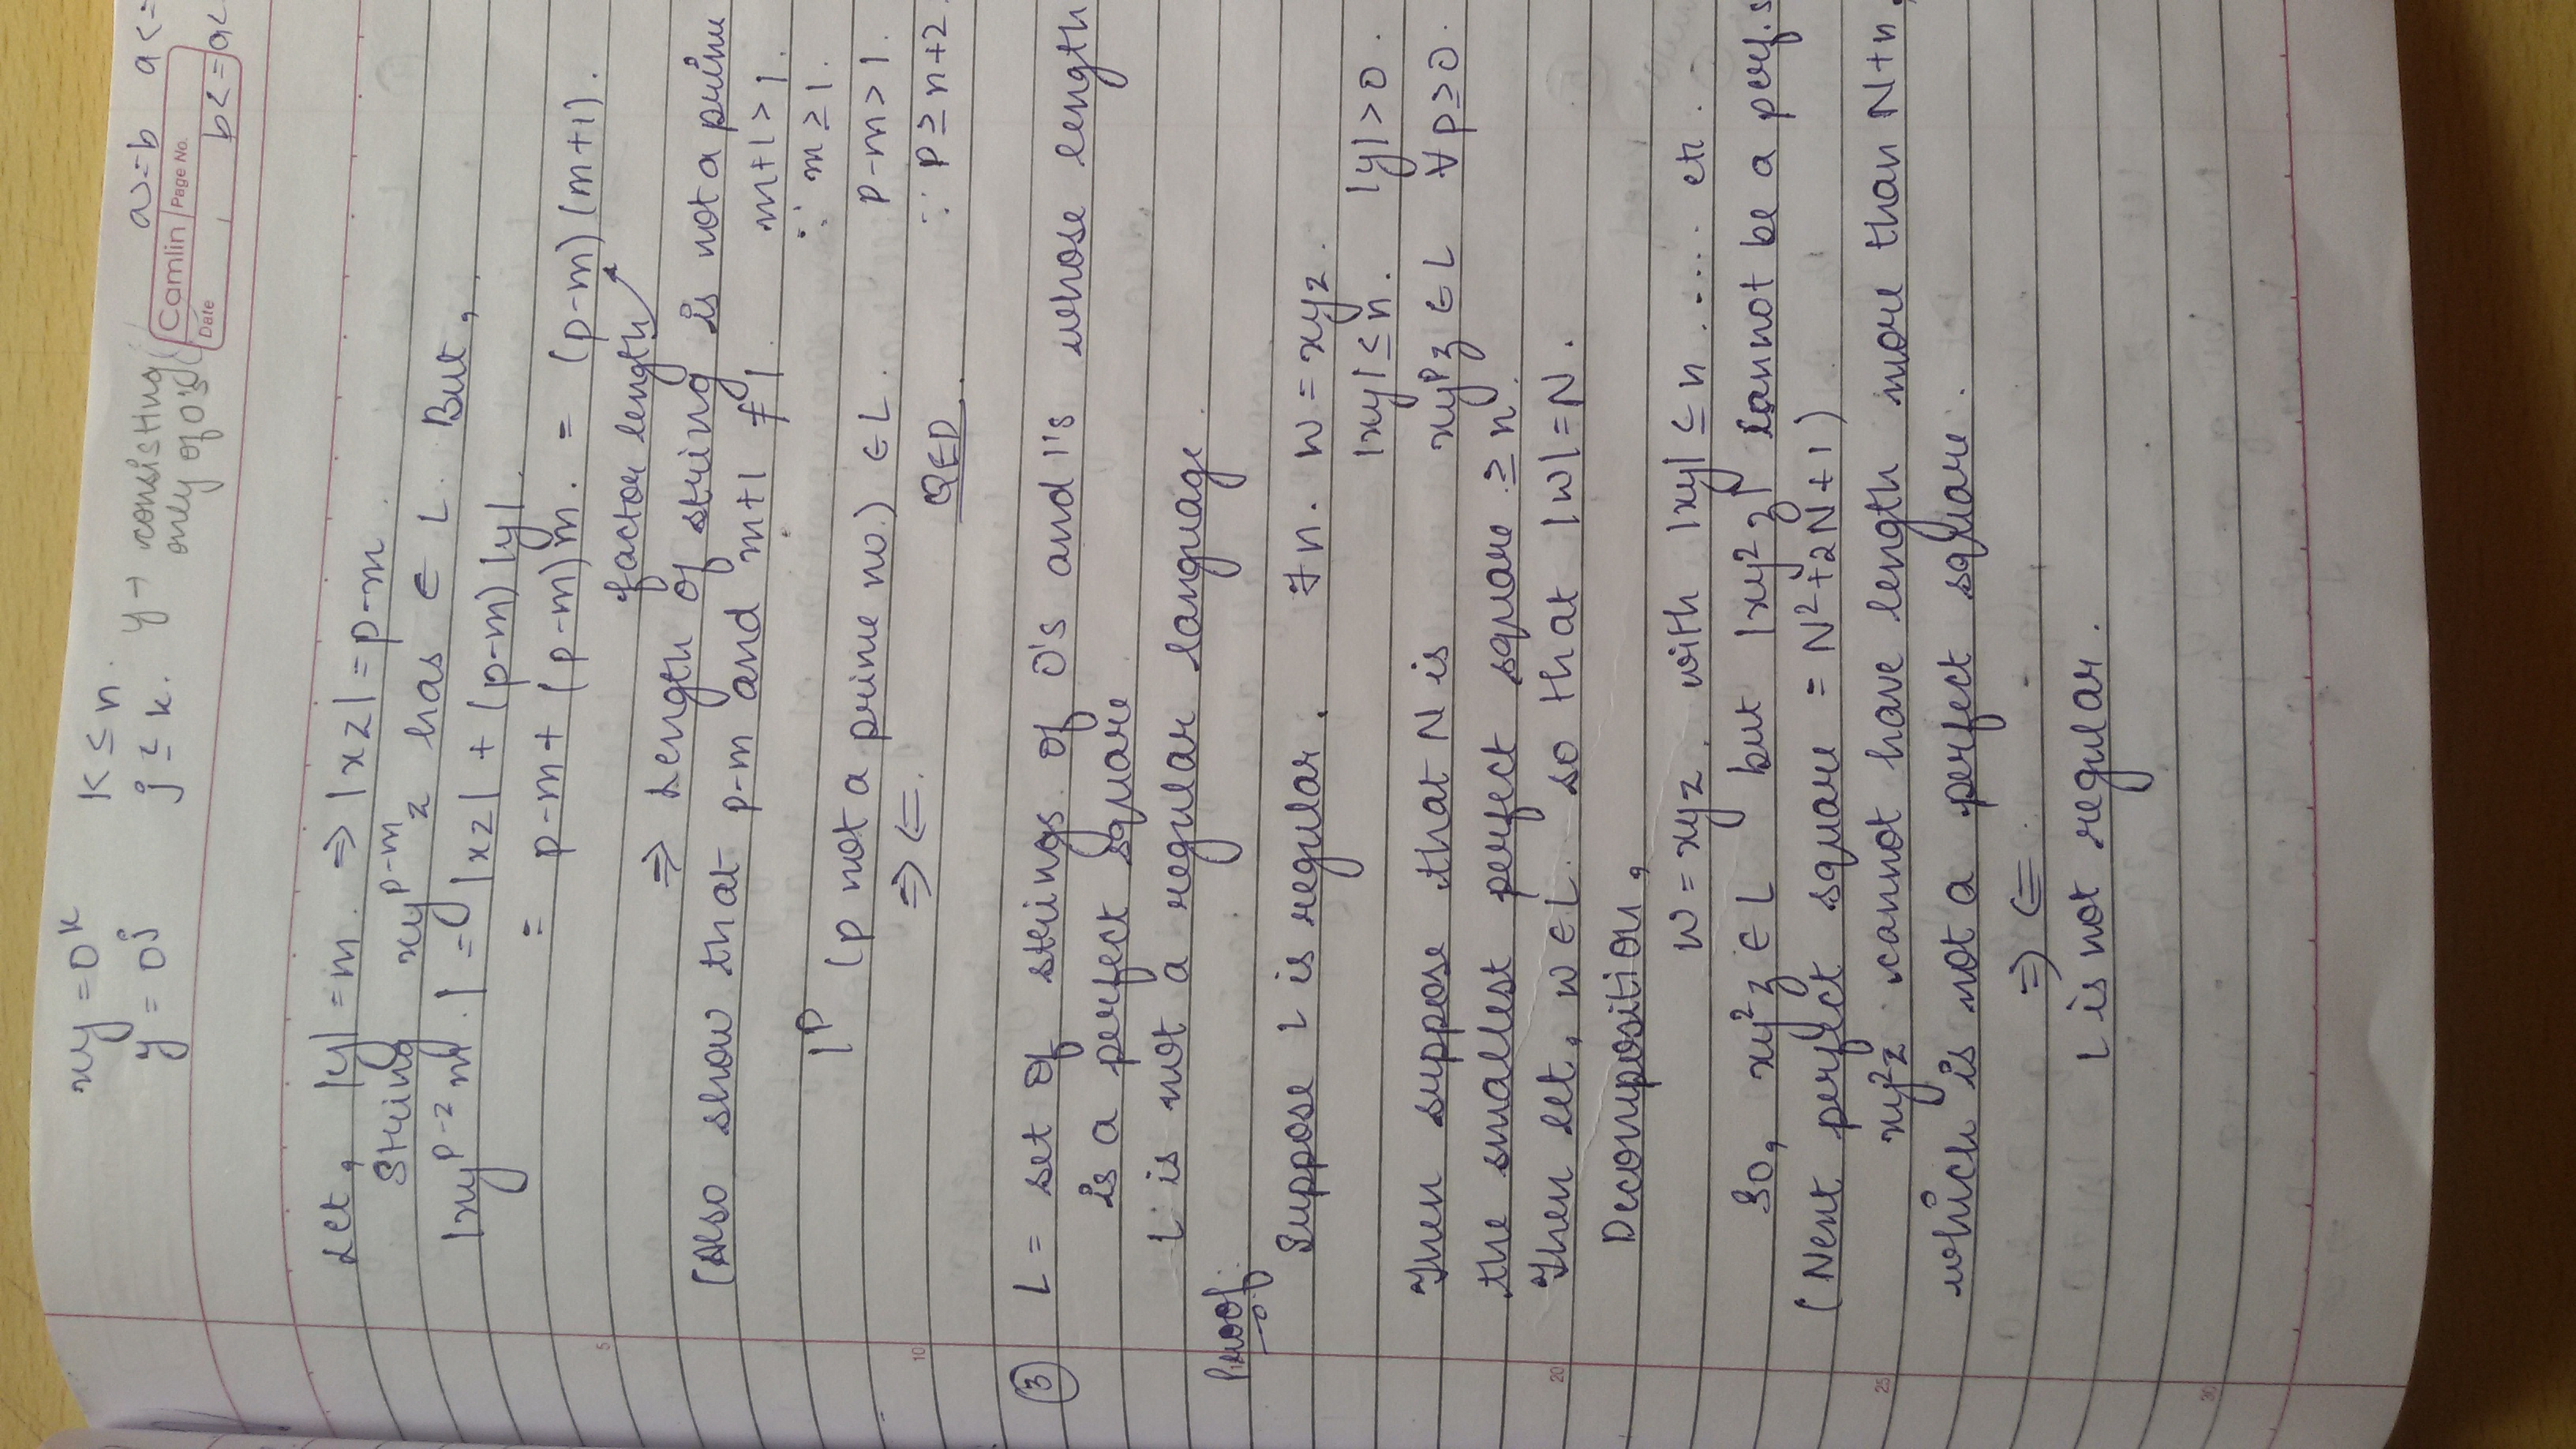 xy = 0^k k ≤ n.
y = 0^j j ≤ k. y → consisting only of 0's
a>=b a<=
Camlin Page No.
Date b<=a<
Let, |y| = m. ⇒ |xz| = p-m.
String xy^{p-m}z has ∈ L. But,
|xy^{p-z}m.| = |xz| + (p-m)|y|.
= p-m + (p-m)m. = (p-m)(m+1).
factor length
⇒ Length of string is not a prime
(Also show that p-m and m+1 ≠ 1. m+1 > 1.
∵ m ≥ 1.
1^p (p not a prime no.) ∈ L. p-m > 1.
⇒⇐. QED. ∵ p ≥ n+2.
③ L = set of strings of 0's and 1's whose length
is a perfect square
L is not a regular language.
Proof:
Suppose L is regular. ∃ n. w = xyz.
|xy| ≤ n. |y| > 0.
Then suppose that N is xy^pz ∈ L ∀ p ≥ 0.
the smallest perfect square ≥ n.
Then let, w ∈ L. so that |w| = N.
Decomposition,
w = xyz. with |xy| ≤ n ...... etc.
So, xy²z ∈ L but |xy²z| cannot be a perf. s
(Next perfect square = N²+2N+1)
xy²z cannot have length more than N+n,
which is not a perfect square.
⇒⇐.
L is not regular.
5
10
20
25
30